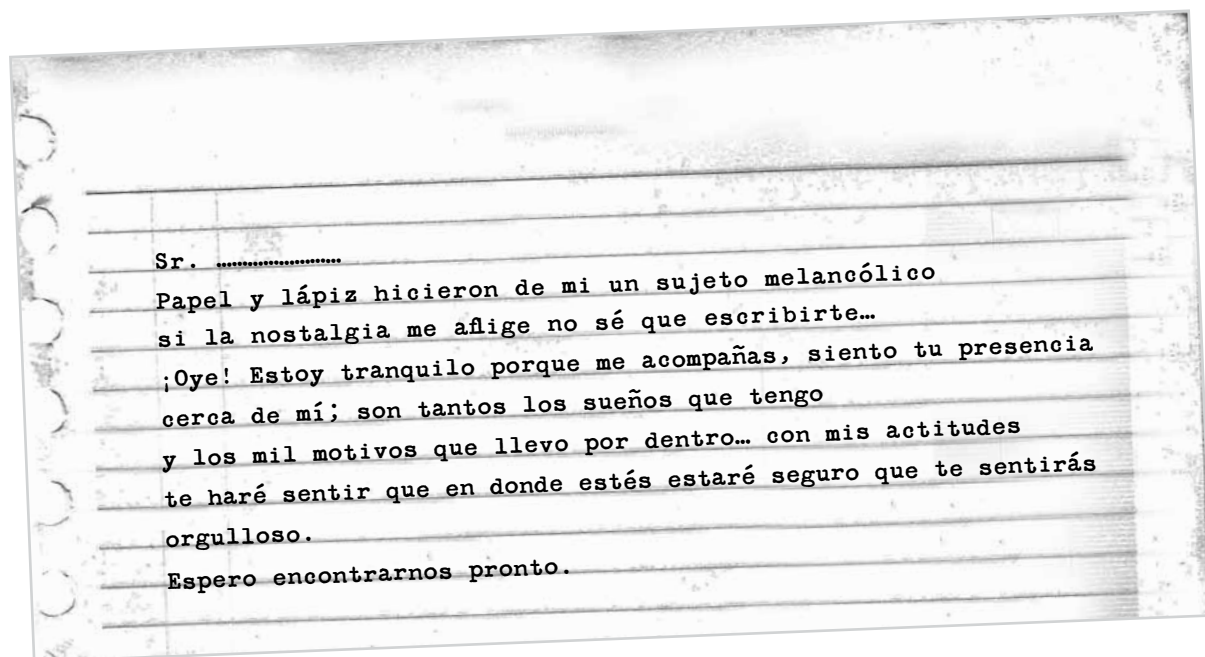 Sr. ........................
Papel y lápiz hicieron de mi un sujeto melancólico
si la nostalgia me aflige no sé que escribirte…
¡Oye! Estoy tranquilo porque me acompañas, siento tu presencia
cerca de mí; son tantos los sueños que tengo
y los mil motivos que llevo por dentro… con mis actitudes
te haré sentir que en donde estés estaré seguro que te sentirás
orgulloso.
Espero encontrarnos pronto.